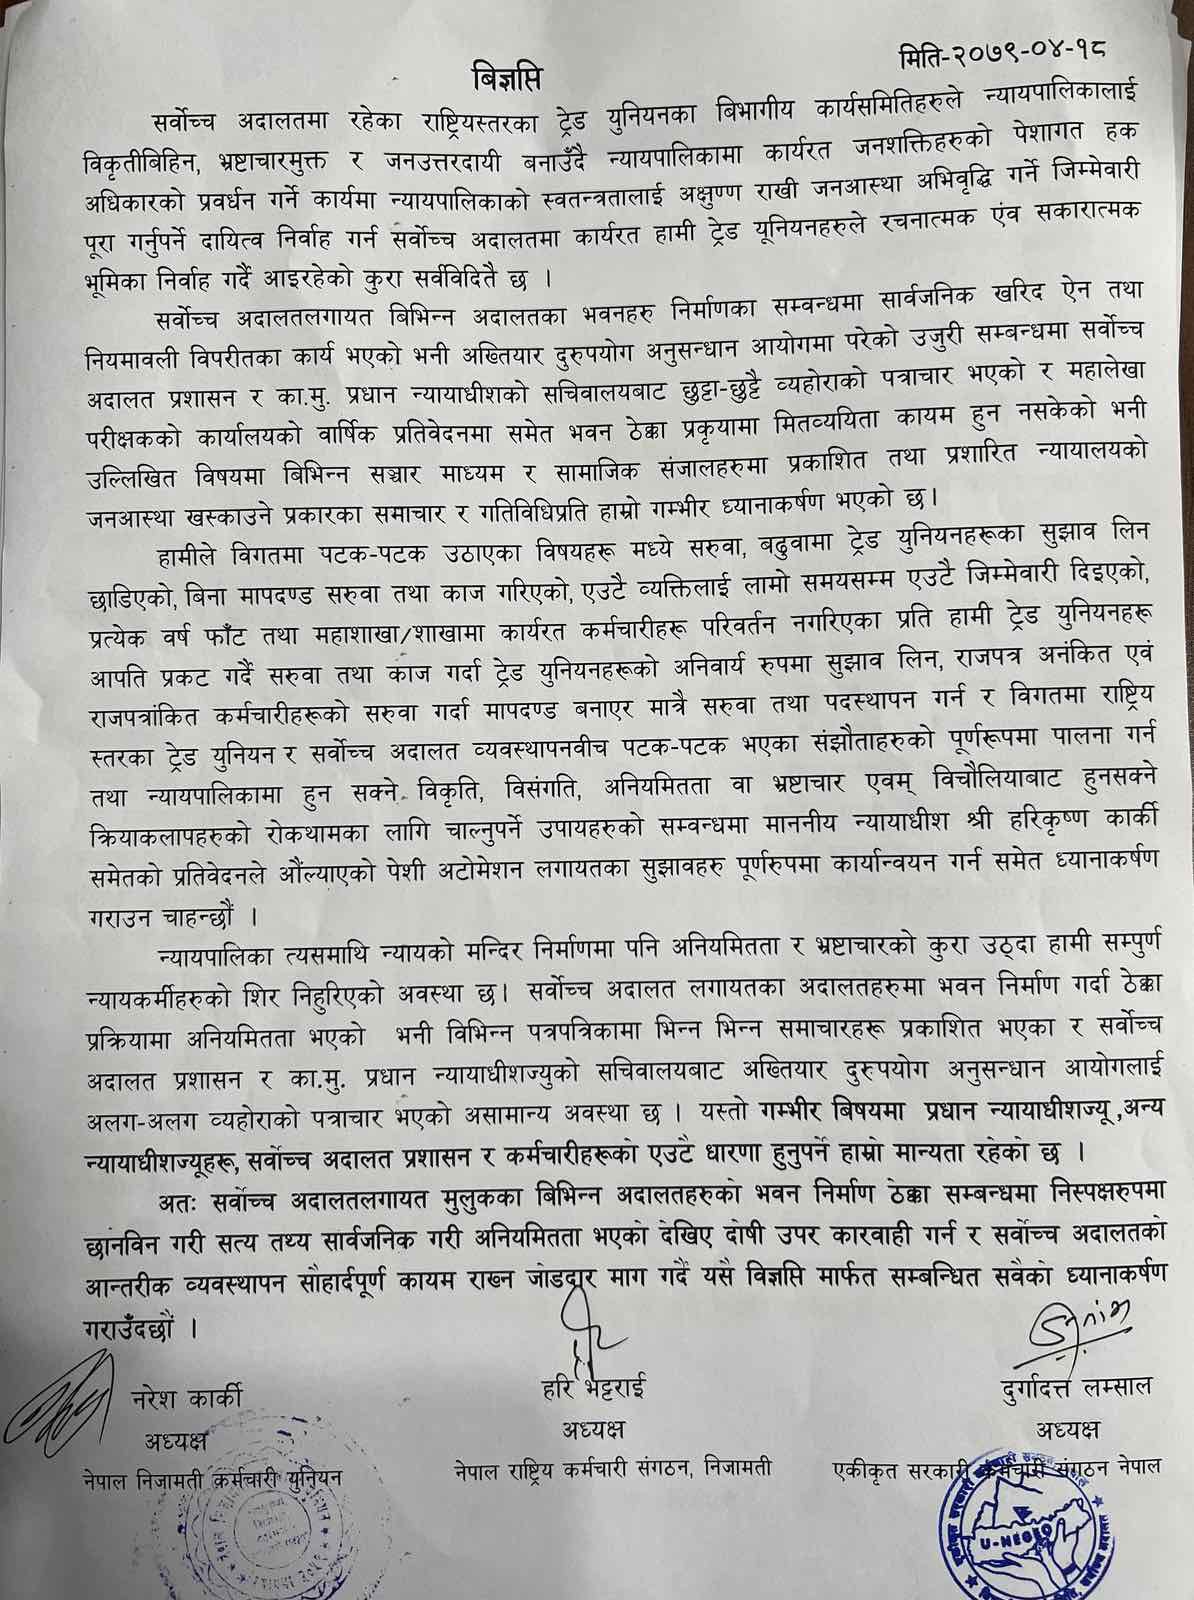 मिति-२०७९-०४-१८
बिज्ञप्ति
सर्वोच्च अदालतमा रहेका राष्ट्रियस्तरका ट्रेड युनियनका बिभागीय कार्यसमितिहरुले न्यायपालिकालाई
विकृतीबिहिन, भ्रष्टाचारमुक्त र जनउत्तरदायी बनाउँदै न्यायपालिकामा कार्यरत जनशक्तिहरुको पेशागत हक
अधिकारको प्रवर्धन गर्ने कार्यमा न्यायपालिकाको स्वतन्त्रतालाई अक्षुण्ण राखी जनआस्था अभिवृद्धि गर्ने जिम्मेवारी
पूरा गर्नुपर्ने दायित्व निर्वाह गर्न सर्वोच्च अदालतमा कार्यरत हामी ट्रेड यूनियनहरुले रचनात्मक एंव सकारात्मक
भूमिका निर्वाह गर्दै आइरहेको कुरा सर्वविदितै छ ।
सर्वोच्च अदालतलगायत बिभिन्न अदालतका भवनहरु निर्माणका सम्वन्धमा सार्वजनिक खरिद ऐन तथा
नियमावली विपरीतका कार्य भएको भनी अख्तियार दुरुपयोग अनुसन्धान आयोगमा परेको उजुरी सम्बन्धमा सर्वोच्च
अदालत प्रशासन र का.मु. प्रधान न्यायाधीशको सचिवालयबाट छुट्टा-छुट्टै व्यहोराको पत्राचार भएको र महालेखा
परीक्षकको कार्यालयको वार्षिक प्रतिवेदनमा समेत भवन ठेक्का प्रकृयामा मितव्ययिता कायम हुन नसकेको भनी
उल्लिखित विषयमा बिभिन्न सञ्चार माध्यम र सामाजिक संजालहरुमा प्रकाशित तथा प्रशारित न्यायालयको
जनआस्था खस्काउने प्रकारका समाचार र गतिविधिप्रति हाम्रो गम्भीर ध्यानाकर्षण भएको छ।
हामीले विगतमा पटक-पटक उठाएका विषयहरू मध्ये सरुवा, बढुवामा ट्रेड युनियनहरूका सुझाव लिन
छाडिएको, बिना मापदण्ड सरुवा तथा काज गरिएको, एउटै व्यक्तिलाई लामो समयसम्म एउटै जिम्मेवारी दिइएको,
प्रत्येक वर्ष फाँट तथा महाशाखा/शाखामा कार्यरत कर्मचारीहरू परिवर्तन नगरिएका प्रति हामी ट्रेड युनियनहरू
आपति प्रकट गर्दै सरुवा तथा काज गर्दा ट्रेड युनियनहरूको अनिवार्य रुपमा सुझाव लिन, राजपत्र अनंकित एवं
राजपत्रांकित कर्मचारीहरूको सरुवा गर्दा मापदण्ड बनाएर मात्रै सरुवा तथा पदस्थापन गर्न र विगतमा राष्ट्रिय
स्तरका ट्रेड युनियन र सर्वोच्च अदालत व्यवस्थापनवीच पटक-पटक भएका संझौताहरुको पूर्णरूपमा पालना गर्न
तथा न्यायपालिकामा हुन सक्ने विकृति, विसंगति, अनियमितता वा भ्रष्टाचार एवम् विचौलियाबाट हुनसक्ने
क्रियाकलापहरुको रोकथामका लागि चाल्नुपर्ने उपायहरुको सम्वन्धमा माननीय न्यायाधीश श्री हरिकृष्ण कार्की
समेतको प्रतिवेदनले औंल्याएको पेशी अटोमेशन लगायतका सुझावहरु पूर्णरुपमा कार्यान्वयन गर्न समेत ध्यानाकर्षण
गराउन चाहन्छौं ।
न्यायपालिका त्यसमाथि न्यायको मन्दिर निर्माणमा पनि अनियमितता र भ्रष्टाचारको कुरा उठ्दा हामी सम्पुर्ण
न्यायकर्मीहरुको शिर निहुरिएको अवस्था छ। सर्वोच्च अदालत लगायतका अदालतहरुमा भवन निर्माण गर्दा ठेक्का
प्रक्रियामा अनियमितता भएको भनी विभिन्न पत्रपत्रिकामा भिन्न भिन्न समाचारहरू प्रकाशित भएका र सर्वोच्च
अदालत प्रशासन र का.मु. प्रधान न्यायाधीशज्युको सचिवालयबाट अख्तियार दुरुपयोग अनुसन्धान आयोगलाई
अलग-अलग व्यहोराको पत्राचार भएको असामान्य अवस्था छ । यस्तो गम्भीर बिषयमा प्रधान न्यायाधीशज्यू ,अन्य
न्यायाधीशज्यूहरू, सर्वोच्च अदालत प्रशासन र कर्मचारीहरूको एउटै धारणा हुनुपर्ने हाम्रो मान्यता रहेको छ ।
अतः सर्वोच्च अदालतलगायत मुलुकका बिभिन्न अदालतहरुको भवन निर्माण ठेक्का सम्बन्धमा निस्पक्षरुपमा
छानविन गरी सत्य तथ्य सार्वजनिक गरी अनियमितता भएको देखिए दोषी उपर कारवाही गर्न र सर्वोच्च अदालतको
आन्तरीक व्यवस्थापन सौहार्दपूर्ण कायम राख्न जोडदार माग गर्दै यसै विज्ञप्ति मार्फत सम्बन्धित सवैको ध्यानाकर्षण
गराउँदछौं ।
नरेश कार्की हरि भट्टराई दुर्गादत्त लम्साल
अध्यक्ष अध्यक्ष अध्यक्ष
नेपाल निजामती कर्मचारी युनियन नेपाल राष्ट्रिय कर्मचारी संगठन, निजामती एकीकृत सरकारी कर्मचारी संगठन नेपाल